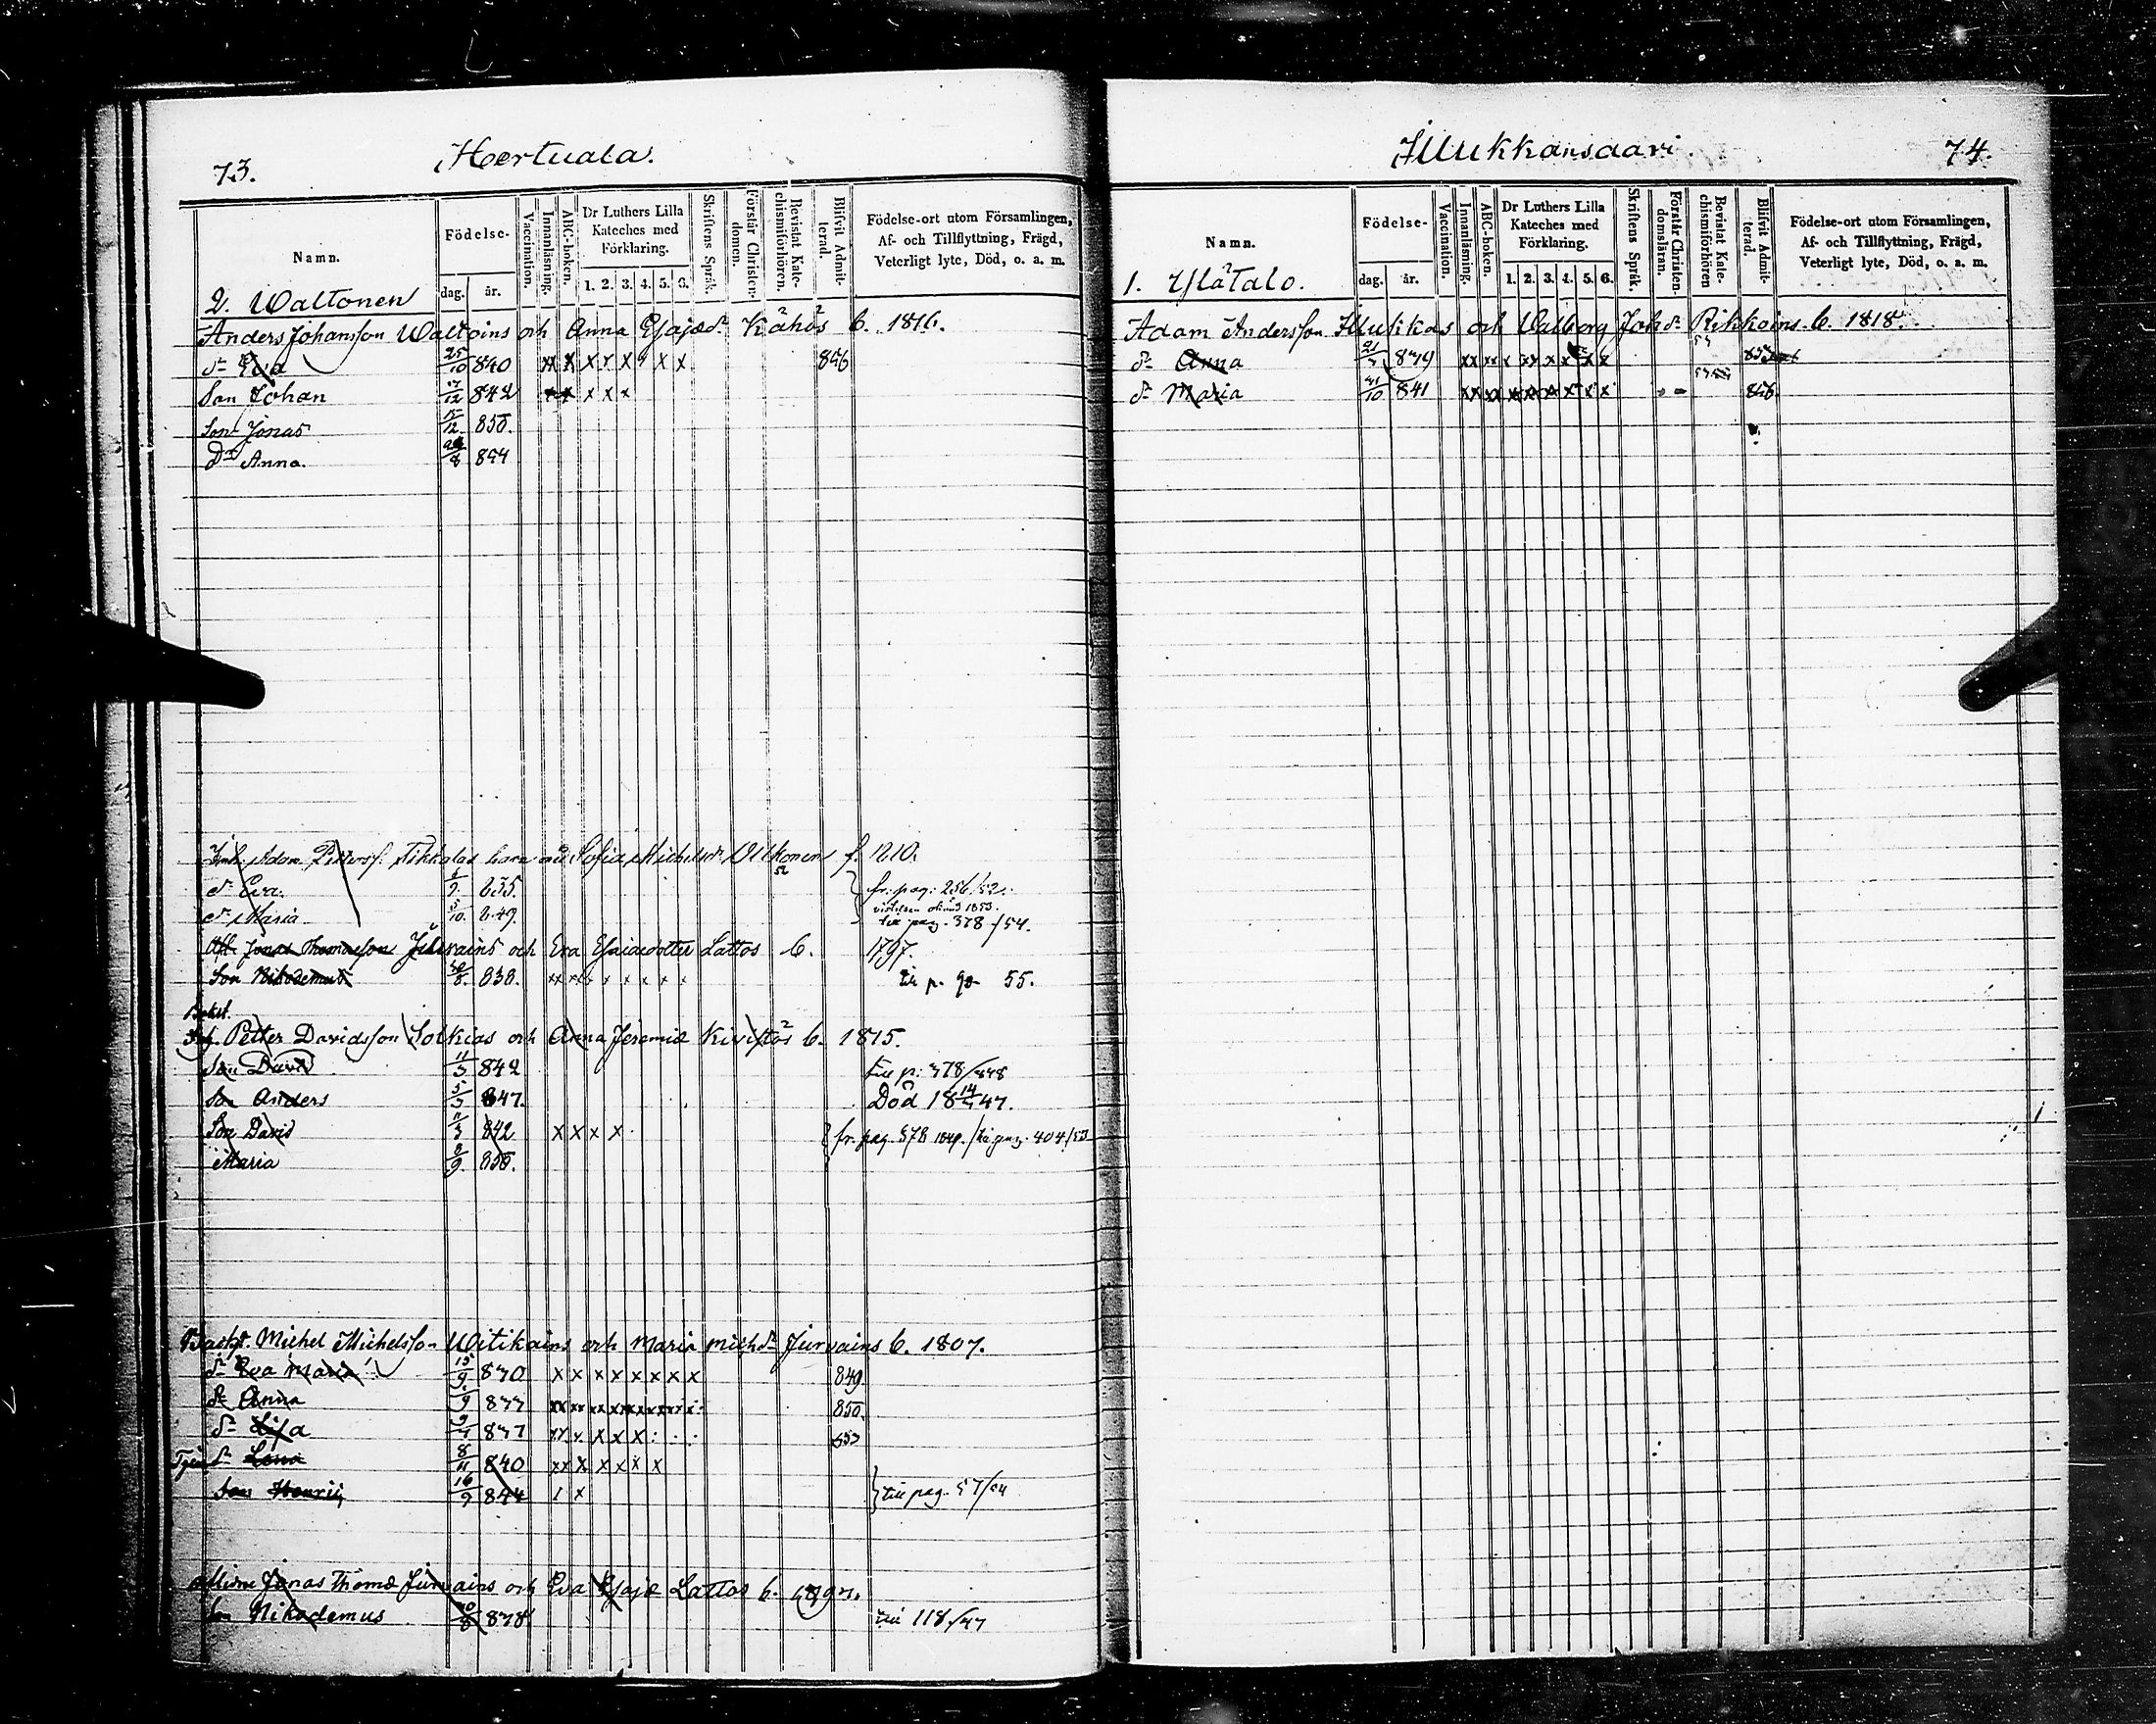 73. Hertuala.
Namn.
Födelse-
dag. år.
Vaccination.
Innanläsning.
ABC-boken.
Dr Luthers Lilla
Kateches med
Förklaring.
1. 2. 3. 4. 5. 6.
Skriftens Språk.
Förstår Christen-
domen.
Bevistat Kate-
chismiförhören.
Blifvit Admit-
terad.
Födelse-ort utom Församlingen,
Af- och Tillflyttning, Frägd,
Veterligt lyte, Död, o. a. m.
2. Waltonen
Anders Johansson Waltoins och Anna Esajæ dr Kähös b. 1816.
dr Eva 25/10 840 xx x x x x x x 856
Son Johan 842 x x x
Son Jonas 12 850.
Dr Anna. 8 854
Inh. Adam Pettersf. Tikkalas barn med Sofia Michelsdr Vilkonen f. 1810.
dr Eva. 9. 835. fr. pag: 256/52.
dr Maria 5/10. 849. till pag. 378/54.
Afl. Jonas Thomasson Jurvains och Eva Esaiaedotter Lattos b. 1797.
Son Nikodemus 20/8. 838. xx xx x x x x x x till p. 90 55.
Inh. Petter Davidsson Sotkias och Anna Jeremiæ Kivistös b. 1815.
Son David 11/3 842 till p: 378/848
Son Anders 5/3 847. Död 18 14/4 47.
Son David 11/3 842 x x x x fr. pag. 378 1849. / till pag. 404/53
Maria 8/9. 850.
Backst. Michel Michelsson Witikains och Maria Michdr Jurvains b. 1807.
dr Eva Maria 15/9 830 x x x x x x x x 849
dr Anna 9 833 xx xx xx x x x x x 850.
dr Lisa 9 837 xx x x x x 853
dr Lena 8/11 840 xx x x x x x
Son Henric 16/9 844 1 x till pag. 57/54
Jonas Thomæ Jurvains och Eva Esajæ Lattos b. 1797.
Son Nikodemus 20/8 838 till 118/47
Illukkansaari. 74.
Namn.
Födelse-
dag. år.
Vaccination.
Innanläsning.
ABC-boken.
Dr Luthers Lilla
Kateches med
Förklaring.
1. 2. 3. 4. 5. 6.
Skriftens Språk.
Förstår Christen-
domsläran.
Bevistat Kate-
chismiförhören
Blifvit Admit-
terad.
Födelse-ort utom Församlingen,
Af- och Tillflyttning, Frägd,
Veterligt lyte, Död, o. a. m.
1. Ylätalo.
Adam Andersson Illukkas och Walborg Joh dr Rikkoins b. 1818.
dr Anna 21 839 xx xx x xx x x x x
dr Maria 10 841 xx xx x x x x x x 856.